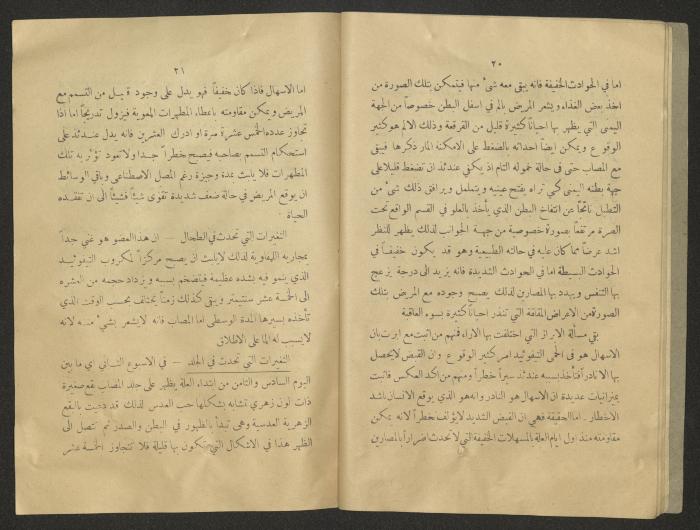 ٢٠
اما في الحوادث الخفيفة فانه يبقى معه شئ منها فيتمكن بتلك الصورة من
اخذ بعض الغذاء ويشعر المريض بالم في اسفل البطن خصوصاً من الجهة
اليمنى التي يظهر بها احياناً كثيرة قليل من القرقعة وذلك الالم هو كثير
الوقوع ويمكن ايضاً احداثه بالضغط على الامكنة المار ذكرها فيبقى
مع المصاب حتى في حالة خموله التام اذ يكفي عندئذ ان تضغط قليلا على
جهة بطنه اليمنى كي تراه يفتح عينيه ويتململ ويرافق ذلك شئ من
التطبل ناتجاً عن انتفاخ البطن الذي يأخذ بالعلو في القسم الواقع تحت
الصرة مرتفعاً بصورة خصوصية من جهة الجوانب لذلك يظهر للنظر
اشد عرضاً مما كان عليه في حالته الطبيعية وهو قد يكون خفيفاً في
الحوادث البسيطة اما في الحوادث الشديدة فانه يزيد الى درجة يزعج
بها التنفس ويهدد بها المصارين لذلك يصبح وجوده مع المريض بتلك
الصورة من الاعراض المقلقة التي تنذر احياناً كثيرة بسوء العاقبة
بقي مسألة الابراز التي اختلفت بها الآراء فمنهم من اثبت مع ابرت بان
الاسهال هو في الحمى التيفوئيد امر كثير الوقوع وان القبض لا يحصل
بها الا نادراً فتأخذ بسببه عندئذ سيراً خطراً ومنهم من اكد العكس فاثبت
بميزانيات عديدة ان الاسهال هو النادر وانه هو الذي يوقع الانسان باشد
الاخطار. اما الحقيقة فهي ان القبض الشديد لا يؤلف خطراً لانه يمكن
مقاومته منذ اول ايام العلة بالمسهلات الخفيفة التي لا تحدث اضراراً بالمصارين
٢١
اما الاسهال فاذا كان خفيفاً فهو يدل على وجود قليل من التسمم مع
المريض ويمكن مقاومته باعطاء المطهرات المعوية فيزول تدريجاً اما اذا
تجاوز عدده الخمس عشرة مرة او ادرك العشرين فانه يدل عندئذ على
استحكام التسمم بصاحبه فيصبح خطراً جداً ولا تعود تؤثر به تلك
المطهرات فلا يلبث بمدة وجيزة رغم المصل الاصطناعي وباقي الوسائط
ان يوقع المريض في حالة ضعف شديدة تقوى شيئاً فشيئاً الى ان تفقده
الحياة
التغيرات التي تحدث في الطحال — ان هذا العضو هو غني جداً
بمجاريه اللمفاوية لذلك لا يلبث ان يصبح مركزاً لمكروب التيفوئيد
الذي ينمو فيه بشدة عظيمة فيتضخم بسببه ويزداد حجمه من العشرة
الى الخمسة عشر سنتيمتر ويبقى كذلك زمناً يختلف بحسب الوقت الذي
تأخذه بسيرها المدة الوسطى اما المصاب فانه لا يشعر بشئ منه لانه
لا يسبب له الماً على الاطلاق
التغيرات التي تحدث في الجلد — في الاسبوع الثاني اي ما بين
اليوم السادس والثامن من ابتداء العلة يظهر على جلد المصاب بقع صغيرة
ذات لون زهري تشابه بشكلها حب العدس لذلك قد دعيت بالبقع
الزهرية العدسية وهي تبدأ بالظهور في البطن والصدر ثم تتصل الى
الظهر هذا في الاشكال التي تكون بها قليلة فلا تتجاوز الخمسة عشر